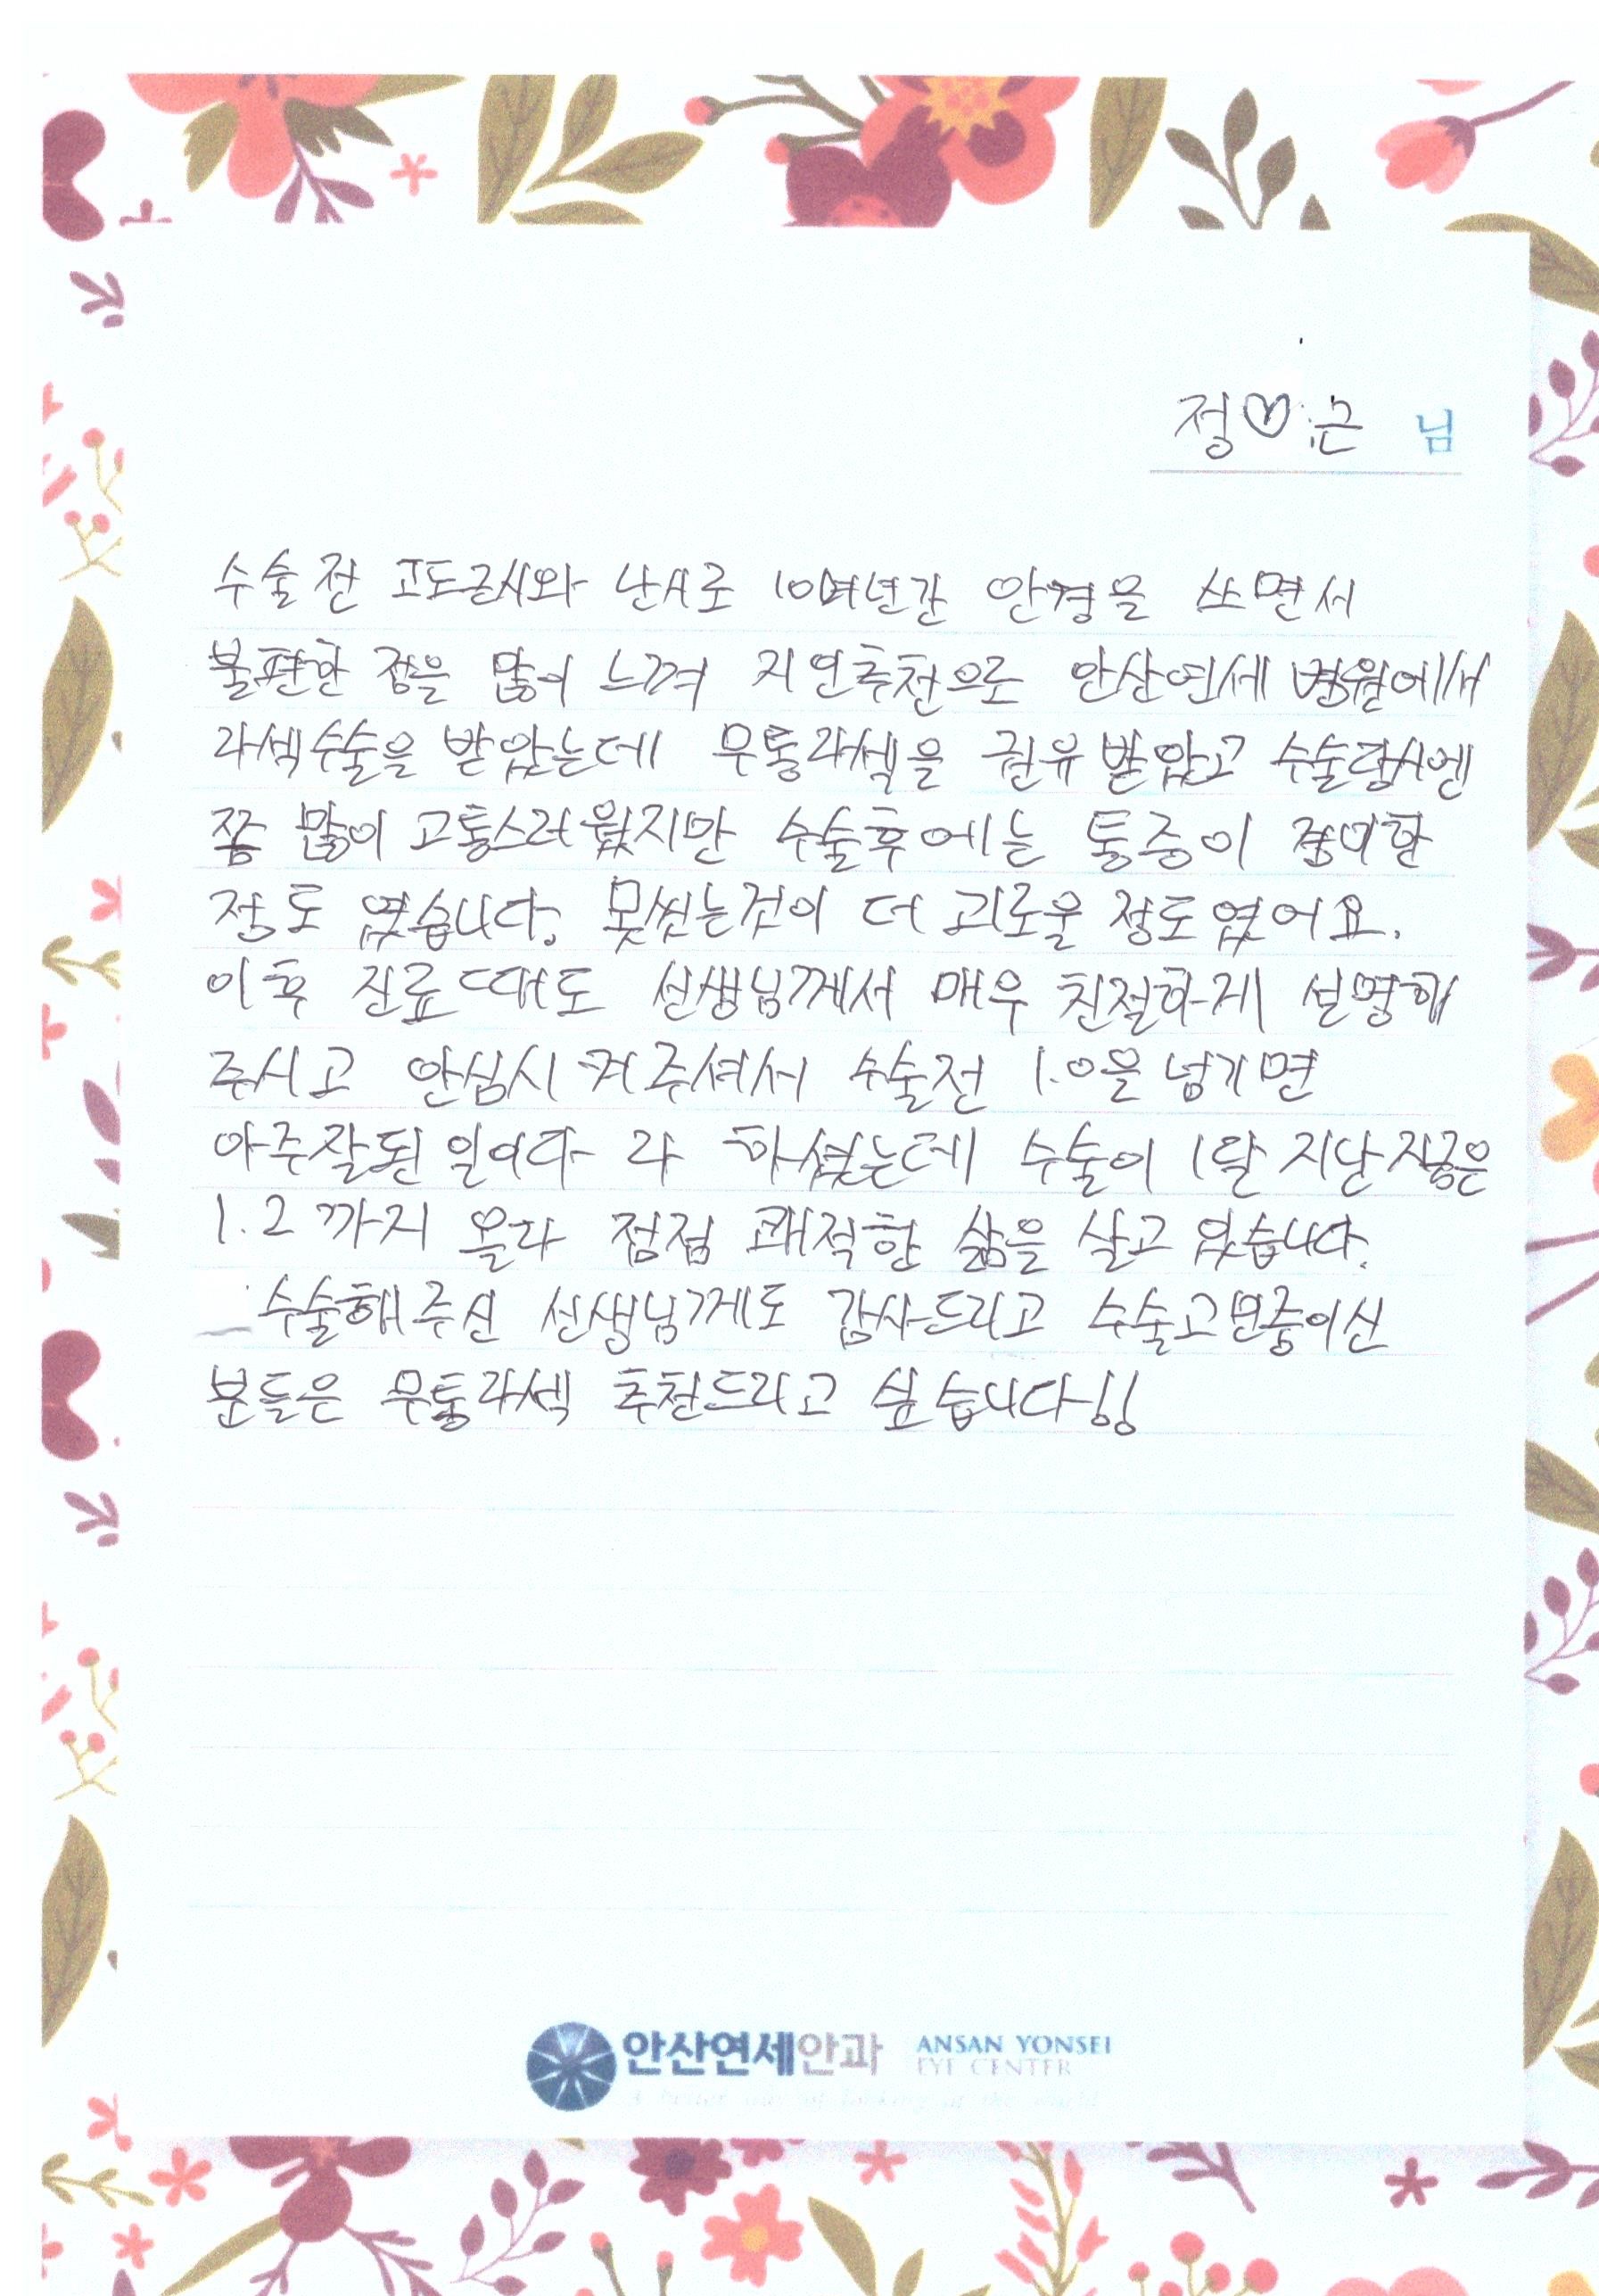 정♡근 님
수술전 고도근시와 난시로 10여년간 안경을 쓰면서
불편한 점을 많이 느껴 지인추천으로 안산연세 병원에서
라섹수술을 받았는데 무통라섹을 권유 받았고 수술당시엔
쫌 많이 고통스러웠지만 수술후에는 통증이 경미한
정도 였습니다. 못씻는것이 더 괴로울 정도였어요.
이후 진료 때도 선생님께서 매우 친절하게 설명해
주시고 안심시켜주셔서 수술전 1.0을 넘기면
아주잘된 일이다 라 하셨는데 수술이 1달 지난 지금은
1.2 까지 올라 점점 쾌적한 삶을 살고 있습니다.
수술해주신 선생님께도 감사드리고 수술고민중이신
분들은 무통라섹 추천드리고 싶습니다!!
안산연세안과 ANSAN YONSEI
EYE CENTER